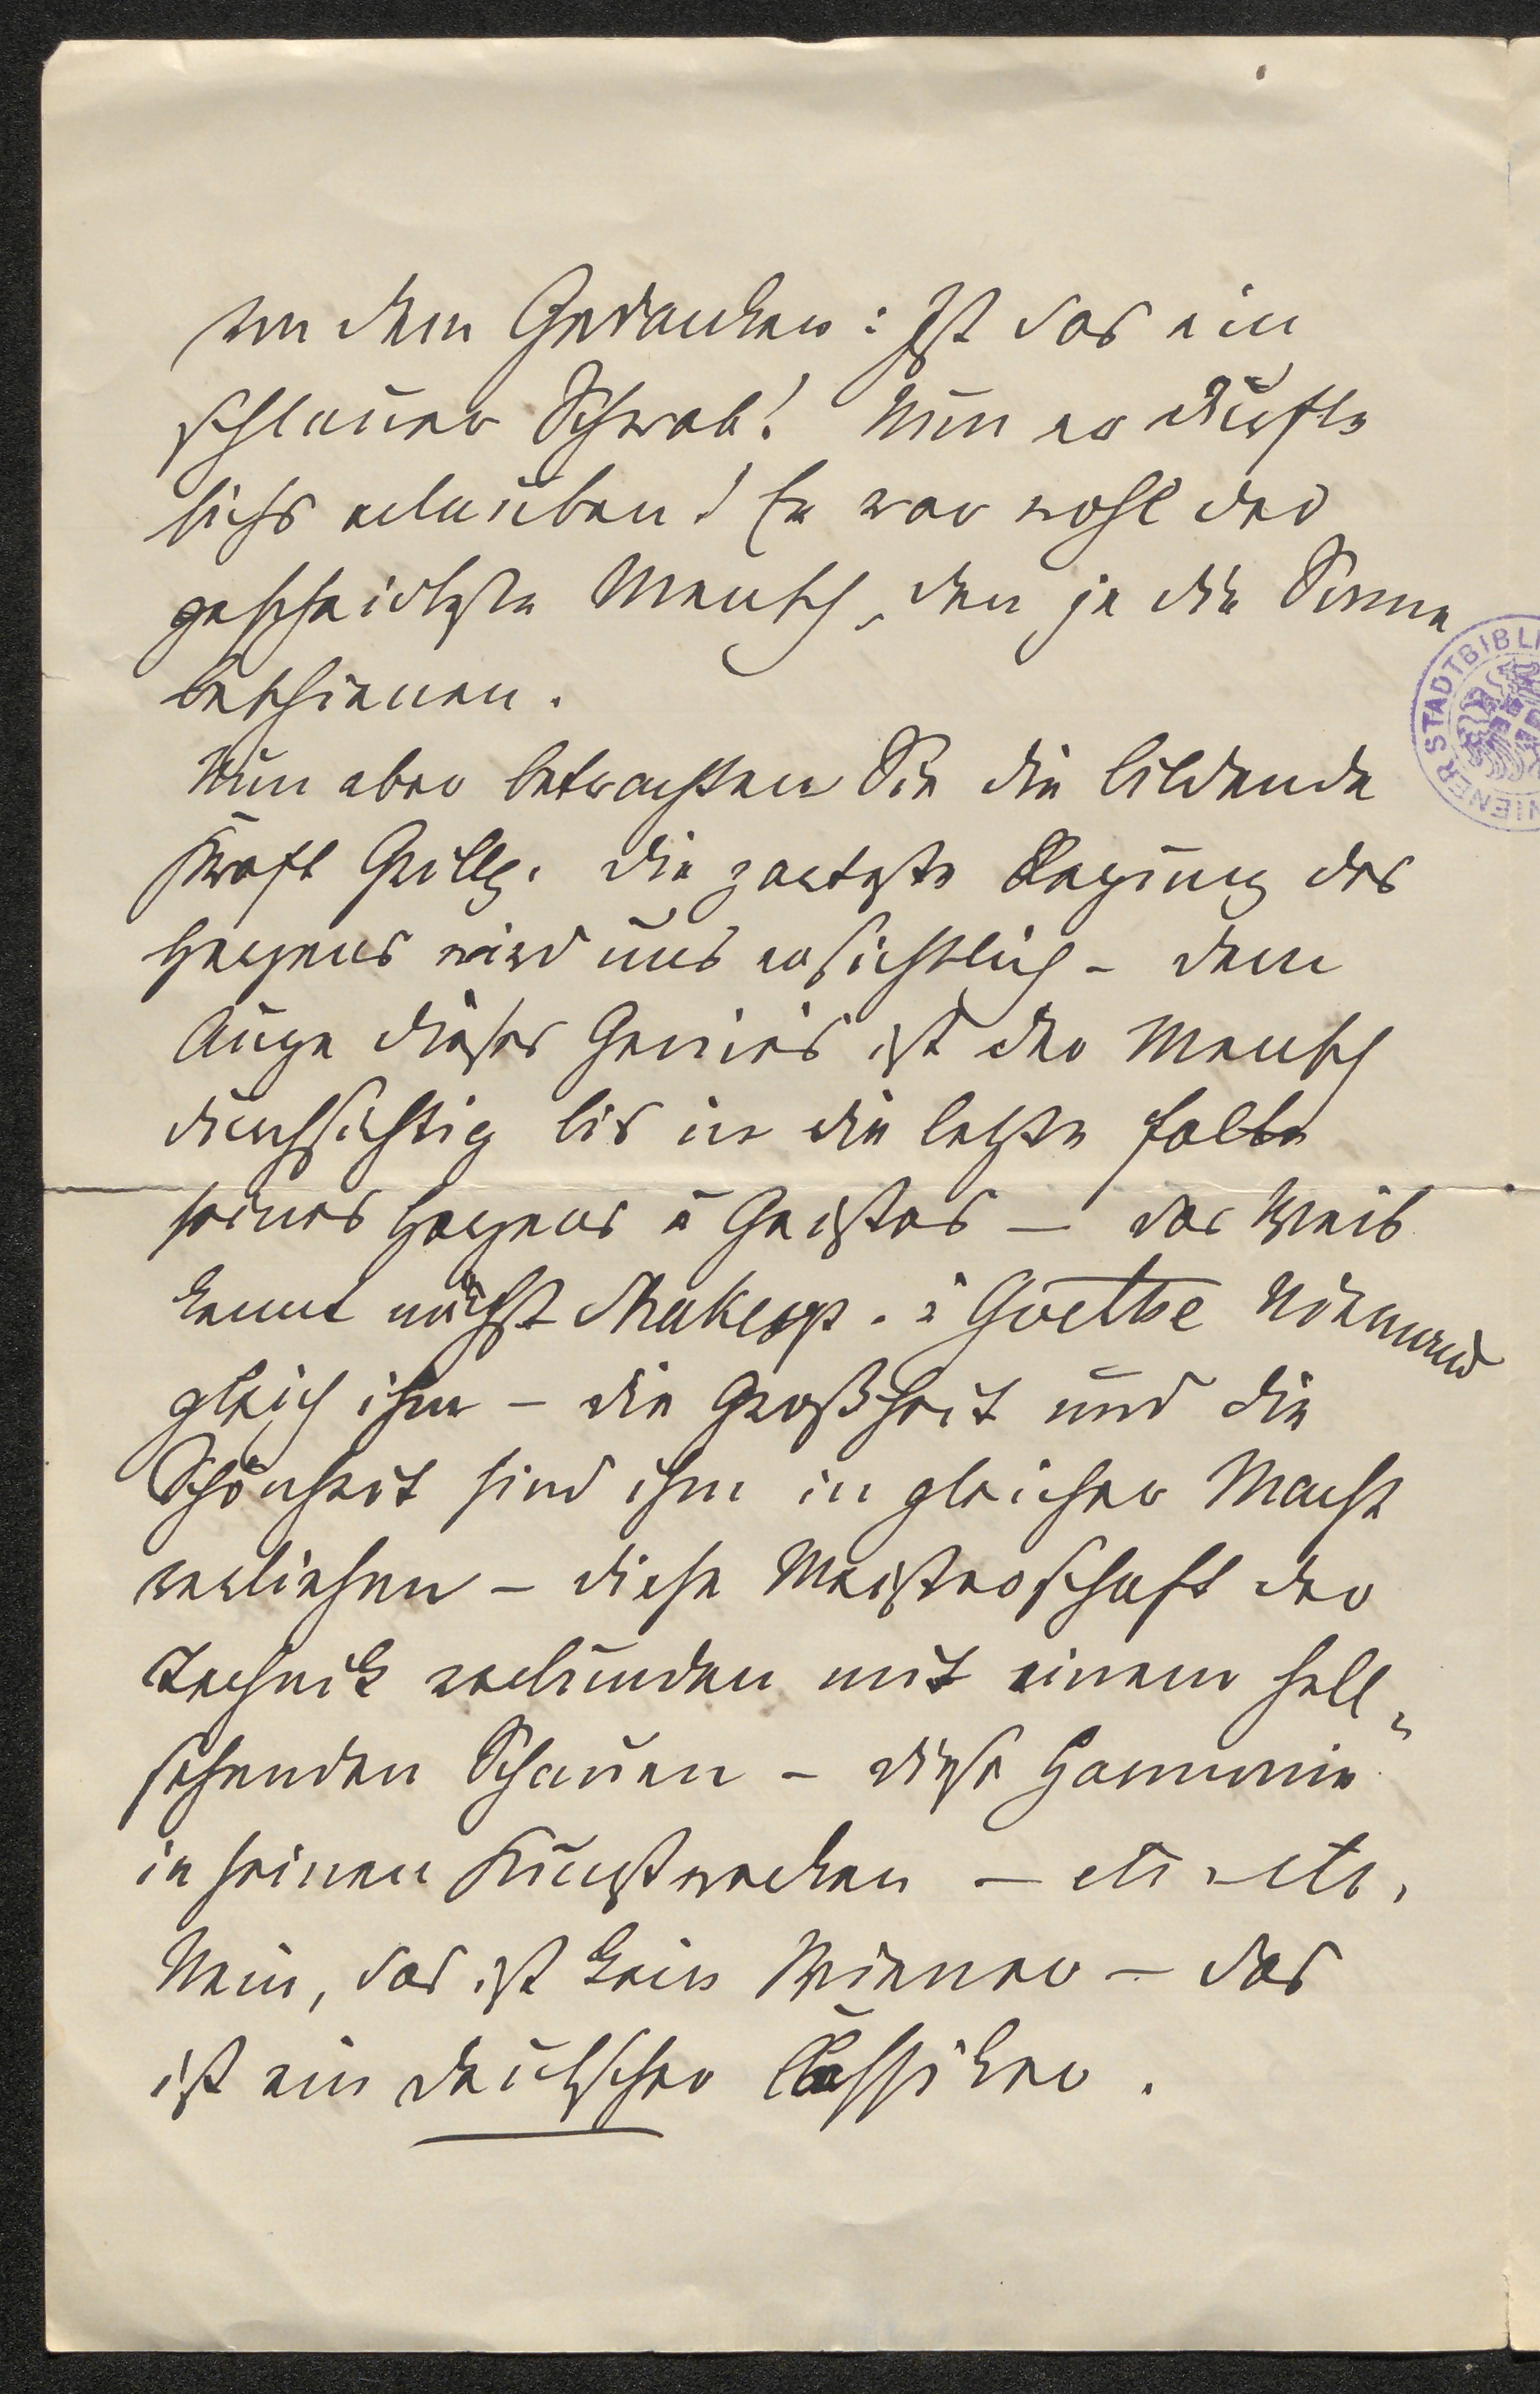 von dem Gedanken: Ist das ein
schlauer Schwab! Nun er dürfte
sichs erlauben! Er war wohl der
gescheidteste Mensch, den je die Sonne
beschienen.
Nun aber betrachten Sie die bildende
Kraft Grillp. die zarteste Regung des
Herzens wird uns ersichtlich – dem
Auge dieses Genies ist der Mensch
durchsichtig bis in die letzte Falte
seines Herzens u Geistes – das Weib
kennt nächst Shakesp. u Goethe Niemand
gleich ihm – die Großheit und die
Schönheit sind ihm in gleicher Macht
verliehen – diese Meisterschaft der
Technik verbunden mit einem hell-
sehenden Schauen – diese Harmonie
in seinen Kunstwerken – etc etc.
Nein, das ist kein Wiener – das
ist ein deutscher Classiker.
WIENER STADTBIBLI